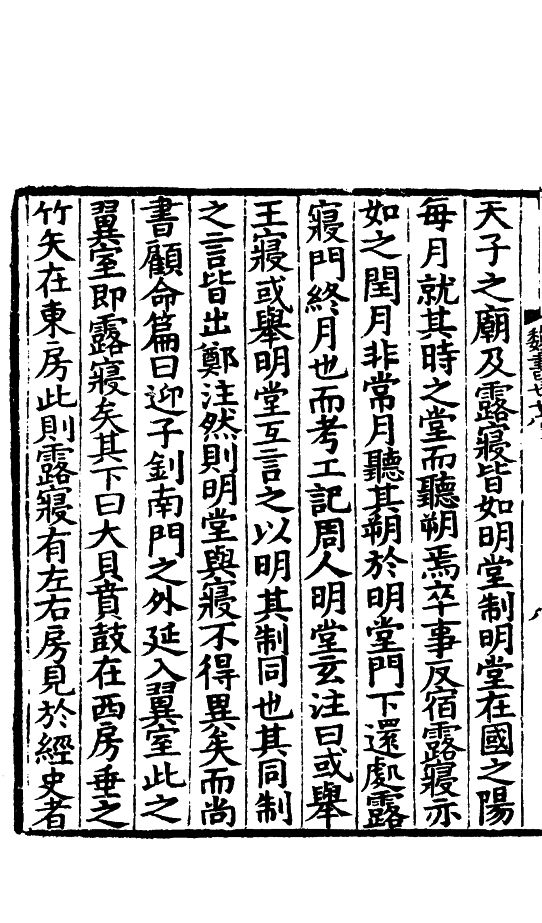 天子之廟及露寢皆如明堂制明堂在國之陽
每月就其時之堂而聽朔焉卒事反宿露寢亦
如之閏月非常月聽其朔於明堂門下還處露
寢門終月也而考工記周人明堂玄注曰或舉
王寢或舉明堂互言之以明其制同也其同制
之言皆出鄭注然則明堂與寢不得異矣而尚
書顧命篇曰迎子釗南門之外延入翼室此之
翼室即露寢矣其下曰大貝賁鼓在西房垂之
竹矢在東房此則露寢有左右房見於經史者